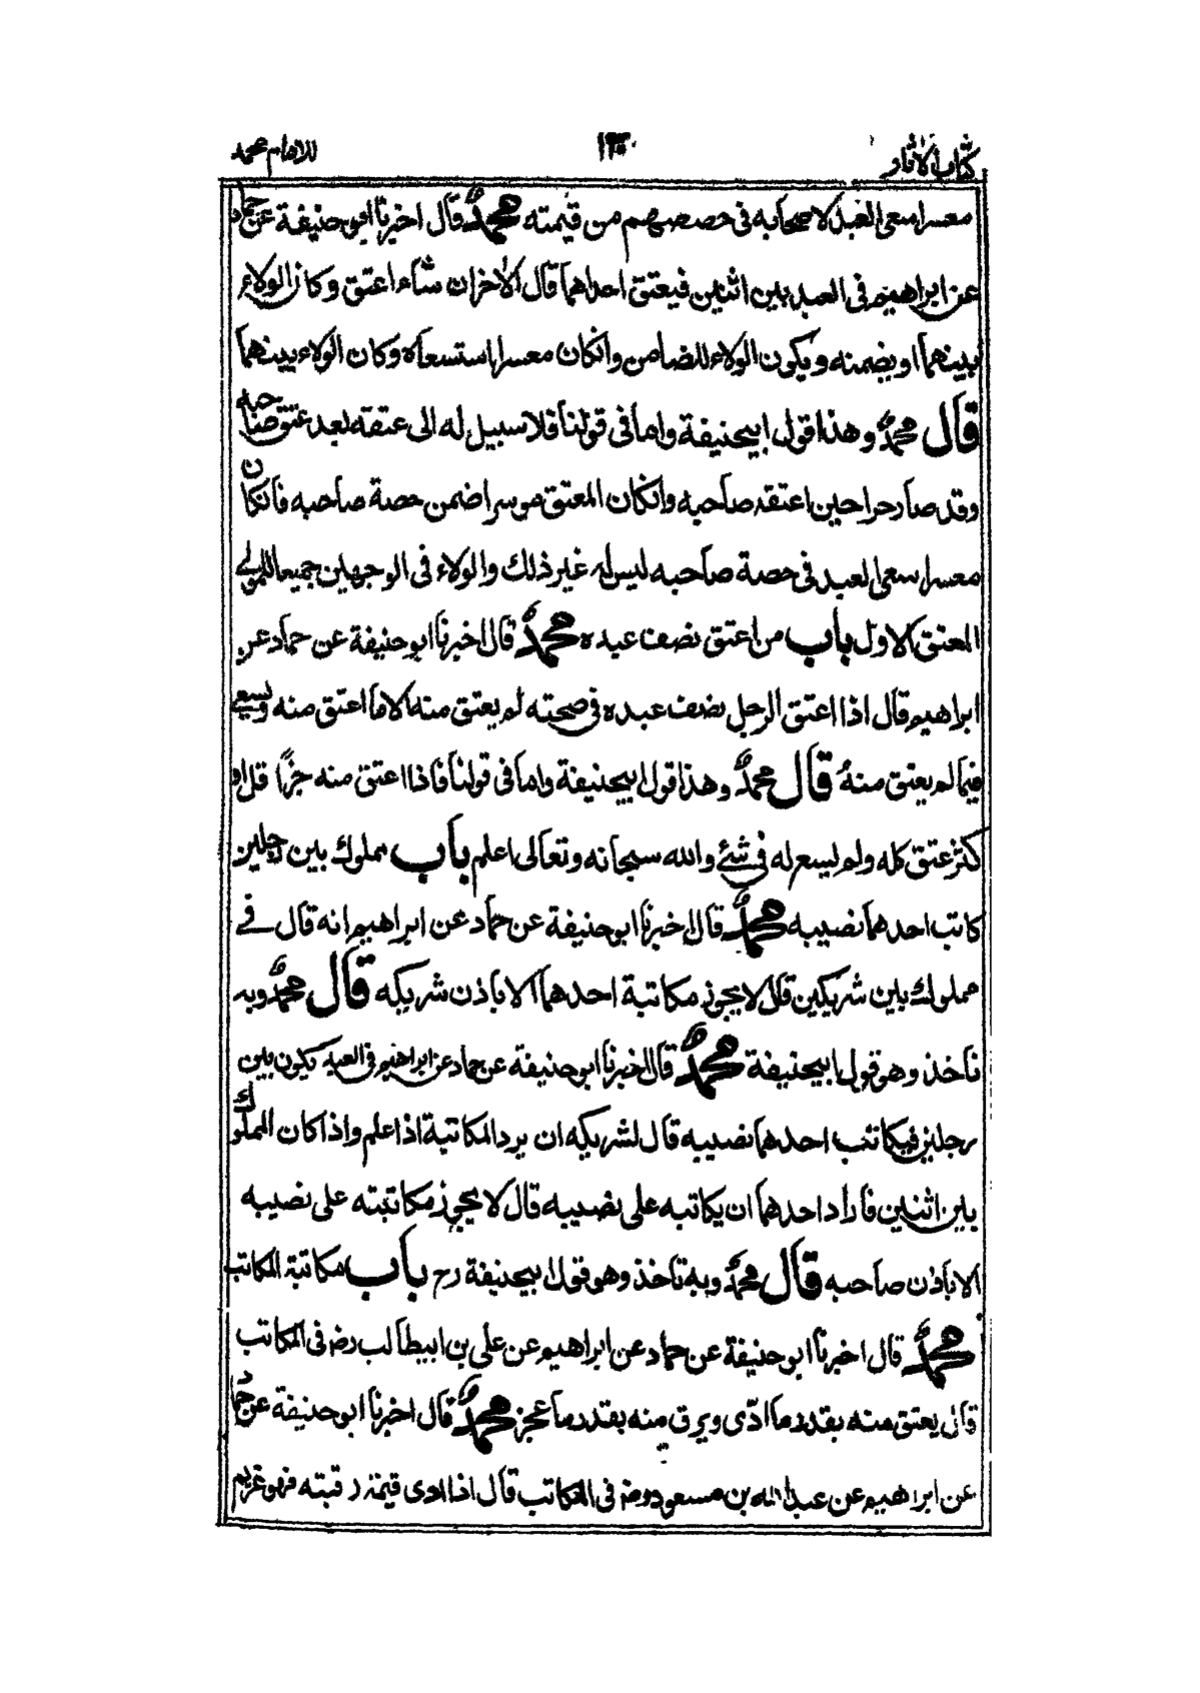 كتاب الاثار ١٣٠ للامام محمد
معسرا سعى العبد لاصحابه فى حصصهم من قيمته محمد قال اخبرنا ابو حنيفة عن حماد
عن ابراهيم فى العبد بين اثنين فيعتق احدهما قال الاخر ان شاء اعتق وكان الولاء
بينهما او يضمنه ويكون الولاء للضامن وانكان معسرا استسعاه وكان الولاء بينهما
قال محمدؒ وهذا قول ابيحنيفة واما فى قولنا فلا سبيل له الى عتقه بعد عتق صاحبه
وقد صار حرا حين اعتقه صاحبه وانكان المعتق موسرا ضمن حصة صاحبه فانكان
معسرا سعى العبد فى حصة صاحبه ليس له غير ذلك والولاء فى الوجهين جميعا للمولى
المعتق الاول باب من اعتق نصف عبده محمدؒ قال اخبرنا ابو حنيفة عن حماد عن
ابراهيم قال اذا اعتق الرجل نصف عبده فى صحته لم يعتق منه الا ما اعتق منه ويسعى
فيما لم يعتق منه قال محمدؒ وهذا قول ابيحنيفة واما فى قولنا فاذا اعتق منه جزأ قل او
كثر عتق كله ولم يسع له فى شئ والله سبحانه وتعالى اعلم باب مملوك بين رجلين
كاتب احدهما نصيبه محمدؒ قال اخبرنا ابو حنيفة عن حماد عن ابراهيم انه قال فى
مملوك بين شريكين قال لا يجوز مكاتبة احدهما الا باذن شريكه قال محمدؒ وبه
ناخذ وهو قول ابيحنيفة محمدؒ قال اخبرنا ابو حنيفة عن حماد عن ابراهيم فى العبد يكون بين
رجلين فيكاتب احدهما نصيبه قال لشريكه ان يرد المكاتبة اذا علم واذا كان المملوك
بين اثنين فاراد احدهما ان يكاتبه على نصيبه قال لا يجوز مكاتبته على نصيبه
الا باذن صاحبه قال محمدؒ وبه ناخذ وهو قول ابيحنيفة رح باب مكاتبة المكاتب
محمدؒ قال اخبرنا ابو حنيفة عن حماد عن ابراهيم عن على بن ابيطالب رضه فى المكاتب
قال يعتق منه بقدر ما ادّى ويرق منه بقدر ما عجز محمدؒ قال اخبرنا ابو حنيفة عن حماد
عن ابراهيم عن عبد الله بن مسعود رضه فى المكاتب قال اذا ادى قيمة رقبته فهو غريم